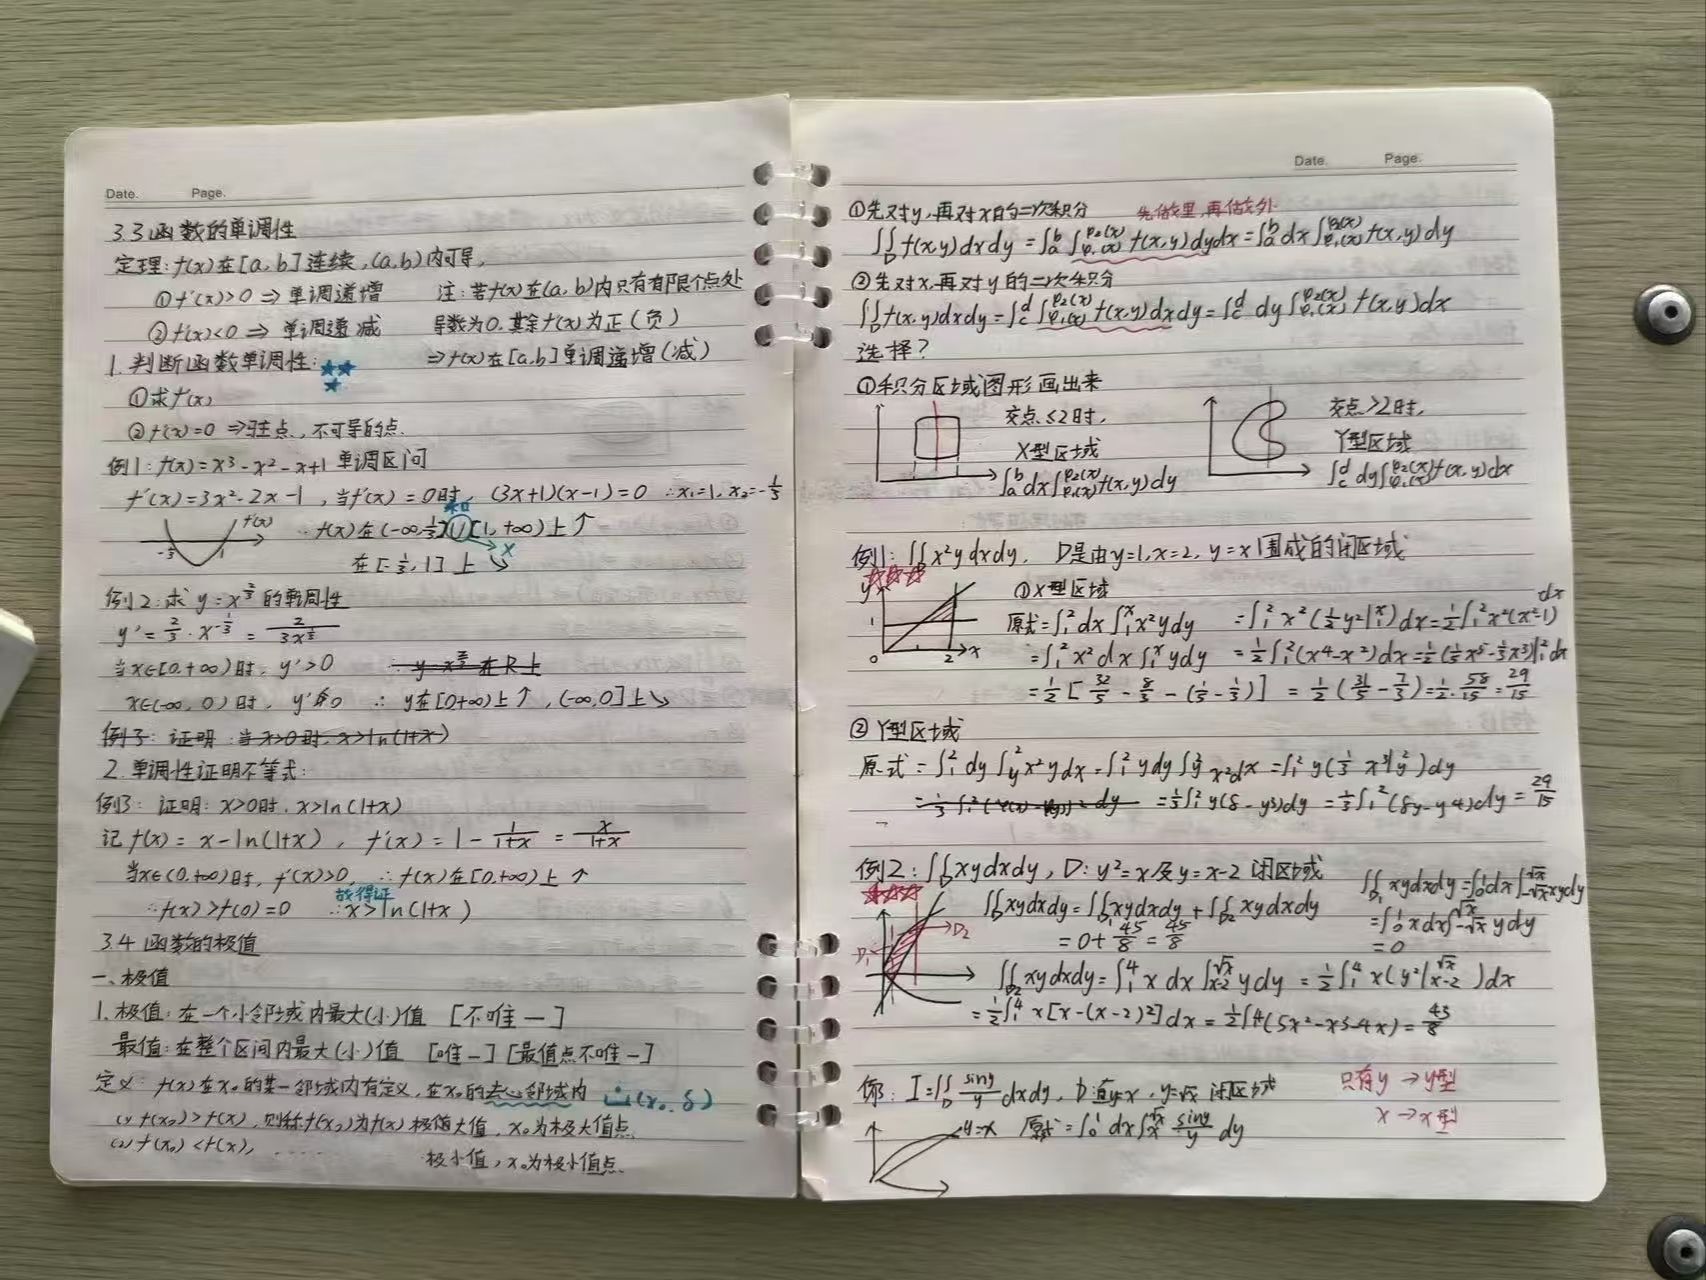 Date. Page.
3.3 函数的单调性
定理: f(x)在[a,b]连续,(a,b)内可导,
①f'(x)>0 ⇒ 单调递增
②f(x)<0 ⇒ 单调递减
注:若f(x)在(a,b)内只有有限个点处
导数为0,其余f'(x)为正(负)
⇒f(x)在[a,b]单调递增(减)
1.判断函数单调性: ★★★
①求f'(x)
②f'(x)=0 ⇒驻点,不可导的点.
例1: f(x)=x³-x²-x+1 单调区间
f'(x)=3x²-2x-1,当f'(x)=0时, (3x+1)(x-1)=0 ∴x₁=1, x₂=-1/3
和
f'(x) -1/3 1
∴f(x)在(-∞,-1/3]∪[1,+∞)上↑
x
在[-1/3,1]上↘
例2:求 y=x^(2/3) 的单调性
y'=2/3·x^(-1/3)=2/(3x^(1/3))
当x∈[0,+∞)时, y'>0 ∴y=x^(2/3)在R上
x∈(-∞,0)时, y'<0 ∴ y在[0+∞)上↑,(-∞,0]上↘
例3: 证明:当x>0时,x>ln(1+x)
2.单调性证明不等式:
例3: 证明: x>0时,x>ln(1+x)
记f(x)=x-ln(1+x), f'(x)=1-1/(1+x)=x/(1+x)
当x∈(0,+∞)时, f'(x)>0, ∴f(x)在[0,+∞)上↑
故得证
∴f(x)>f(0)=0 ∴x>ln(1+x)
3.4 函数的极值
一、极值
1.极值:在一个小邻域内最大(小)值 [不唯一]
最值:在整个区间内最大(小)值 [唯一][最值点不唯一]
定义: f(x)在x₀的某一邻域内有定义,在x₀的去心邻域内 Ů(x₀,δ)
(1) f(x₀)>f(x),则称f(x₀)为f(x)极值大值, x₀为极大值点.
(2) f(x₀)<f(x), ...... 极小值,x₀为极小值点.
Date. Page.
①先对y,再对x的二次积分 先做里,再做外
∬_D f(x,y)dxdy=∫_a^b∫_φ₁(x)^φ₂(x) f(x,y)dydx=∫_a^b dx∫_φ₁(x)^φ₂(x) f(x,y)dy
②先对x,再对y的二次积分
∬_D f(x,y)dxdy=∫_c^d∫_φ₁(x)^φ₂(x) f(x,y)dxdy=∫_c^d dy∫_φ₁(x)^φ₂(x) f(x,y)dx
选择?
①积分区域图形画出来
交点≤2时,
X型区域
∫_a^b dx∫_φ₁(x)^φ₂(x) f(x,y)dy
交点>2时,
Y型区域
∫_c^d dy∫_φ₁(x)^φ₂(x) f(x,y)dx
例1:∬_D x²ydxdy, D是由y=1,x=2,y=x围成的闭区域
☆☆☆
y 1 0 2 x
①X型区域
原式=∫₁²dx∫₁ˣx²ydy =∫₁²x²(½y²|₁ˣ)dx=½∫₁²x²(x²-1)dx
=∫₁²x²dx∫₁ˣydy =½∫₁²(x⁴-x²)dx=½(1/5x⁵-1/3x³)|₁²dx
=½[32/5-8/3-(1/5-1/3)] =½(31/5-7/3)=½·58/15=29/15
②Y型区域
原式=∫₁²dy∫_y²x²ydx=∫₁²ydy∫_y²x²dx=∫₁²y(1/3x³|_y²)dy
=1/3∫₁²y(8-y³)dy=1/3∫₁²(8y-y⁴)dy=29/15
例2:∬_D xydxdy, D:y²=x及y=x-2闭区域
★☆☆
D₁ D₂
∬_D xydxdy=∬_D₁ xydxdy+∬_D₂ xydxdy
=0+45/8=45/8
∬_D₁ xydxdy=∫₀¹dx∫_-√x^√x xydy
=∫₀¹xdx∫_-√x^√x ydy
=0
∬_D₂ xydxdy=∫₁⁴x dx∫_x-2^√x ydy=½∫₁⁴x(y²|_x-2^√x)dx
=½∫₁⁴x[x-(x-2)²]dx=½∫₁⁴(5x²-x³-4x)=45/8
例: I=∬_D siny/y dxdy, D:直y=x, y=√x 闭区域
y=x 原式=∫₀¹dx∫_x^√x siny/y dy
只有y→y型
x→x型